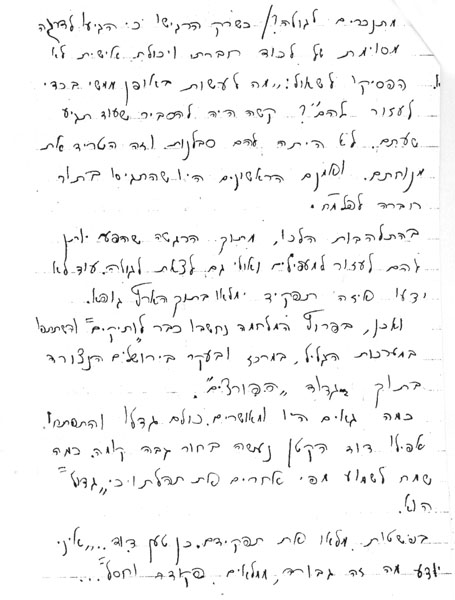 מתנכרים לגולה?/ כשרק הרגישו כי הגיעו לדרגה
מסוימת של לכוד חברתי ויכולת אישית לא
הפסיקו לשאול: "מה לעשות באופן ממשי בכדי
לעזור להם"? קשה היה להסביר שעוד תגיע
שעתם. לא היתה להם סבלנות וזה הטריד את
מנוחתם. ואמנם הראשונים היו שהתגיסו בתור
חברה לפלמ"ח.
בהתלהבות הלכו, מתוך הרגשה שהפעם ינתן
להם לעזור למעפילים ואולי גם לצאת לגולה. עוד לא
ידעו איזה תפקיד ימלאו בתוך הארץ גופא.
ואכן, בפרוץ המלחמה נחשבו כבר "לותיקים" והשתתפו
במערכות הגליל, במרכז ובעקר בירושלים הנצורה
בתוך גדוד "הפורצים".
כמה גאים היו ומאושרים. כולם גדלו והתפתחו.
אפילו דוד הקטן נעשה בחור גבה קומה. כמה
שמח לשמוע מפי אחרים את תהלתו כי "גדול"
הוא.
בפשטות מלאו את תפקידם. כן טען דוד... "איני
יודע מה זה גבורה, ממלאים פקודה וחסל"...